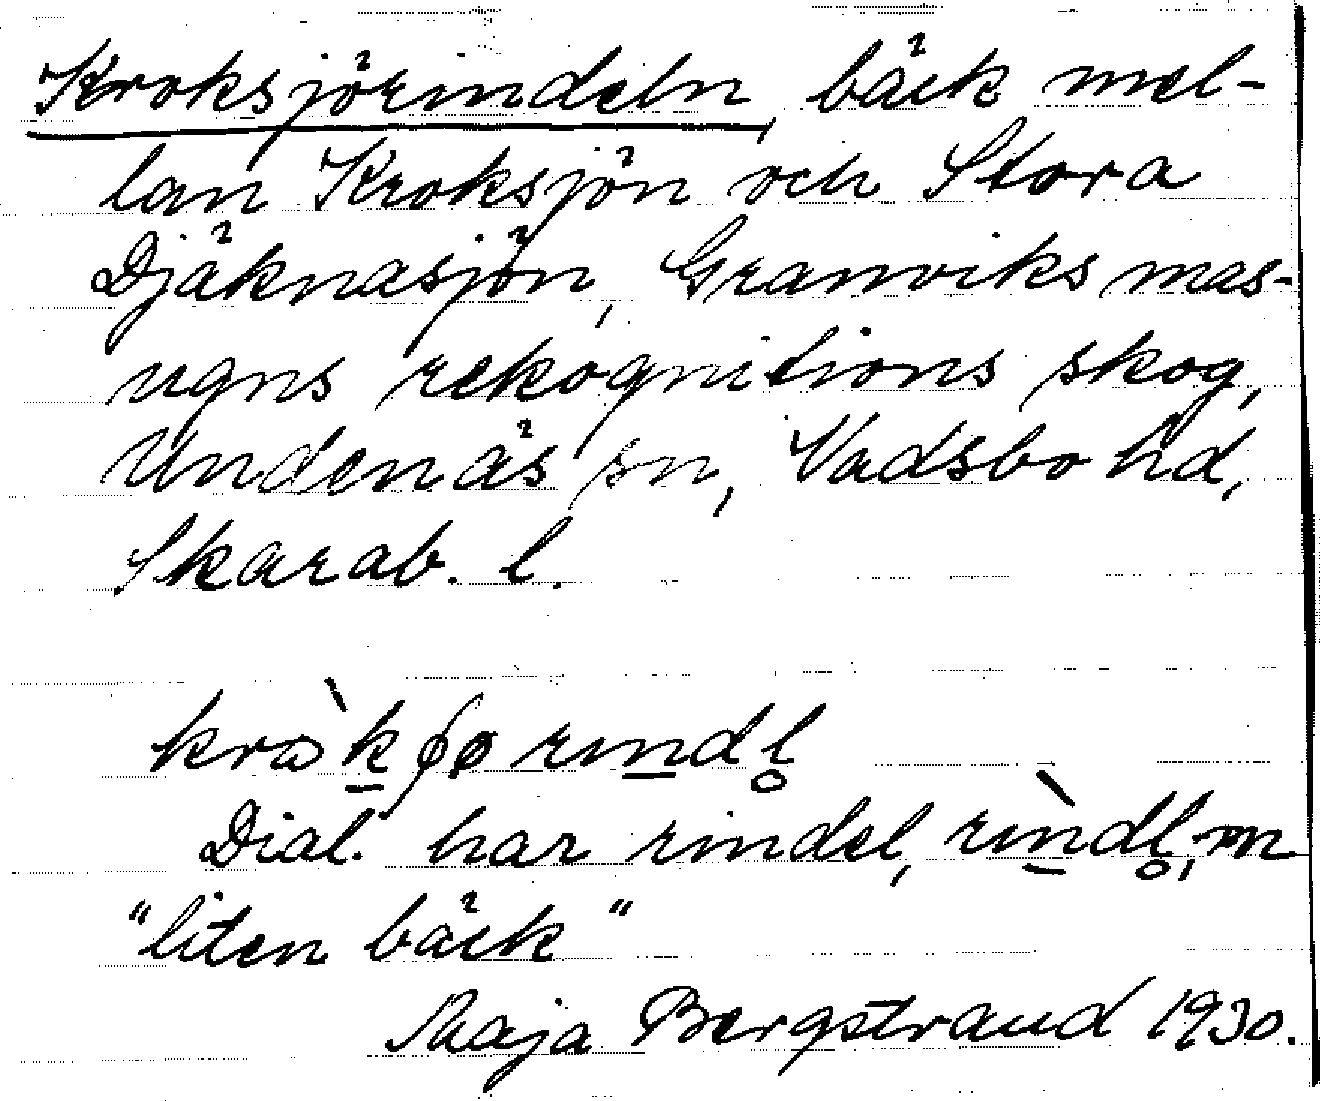 Kroksjörindeln, bäck mel-
lan Kroksjön och Stora
Djäknasjön, Granviks mas-
ugns rekognitions skog,
Undenäs sn, Vadsbo hd,
Skarab. l.
Dial. har rindel, m
"liten bäck"
Maja Bergstrand 1930.